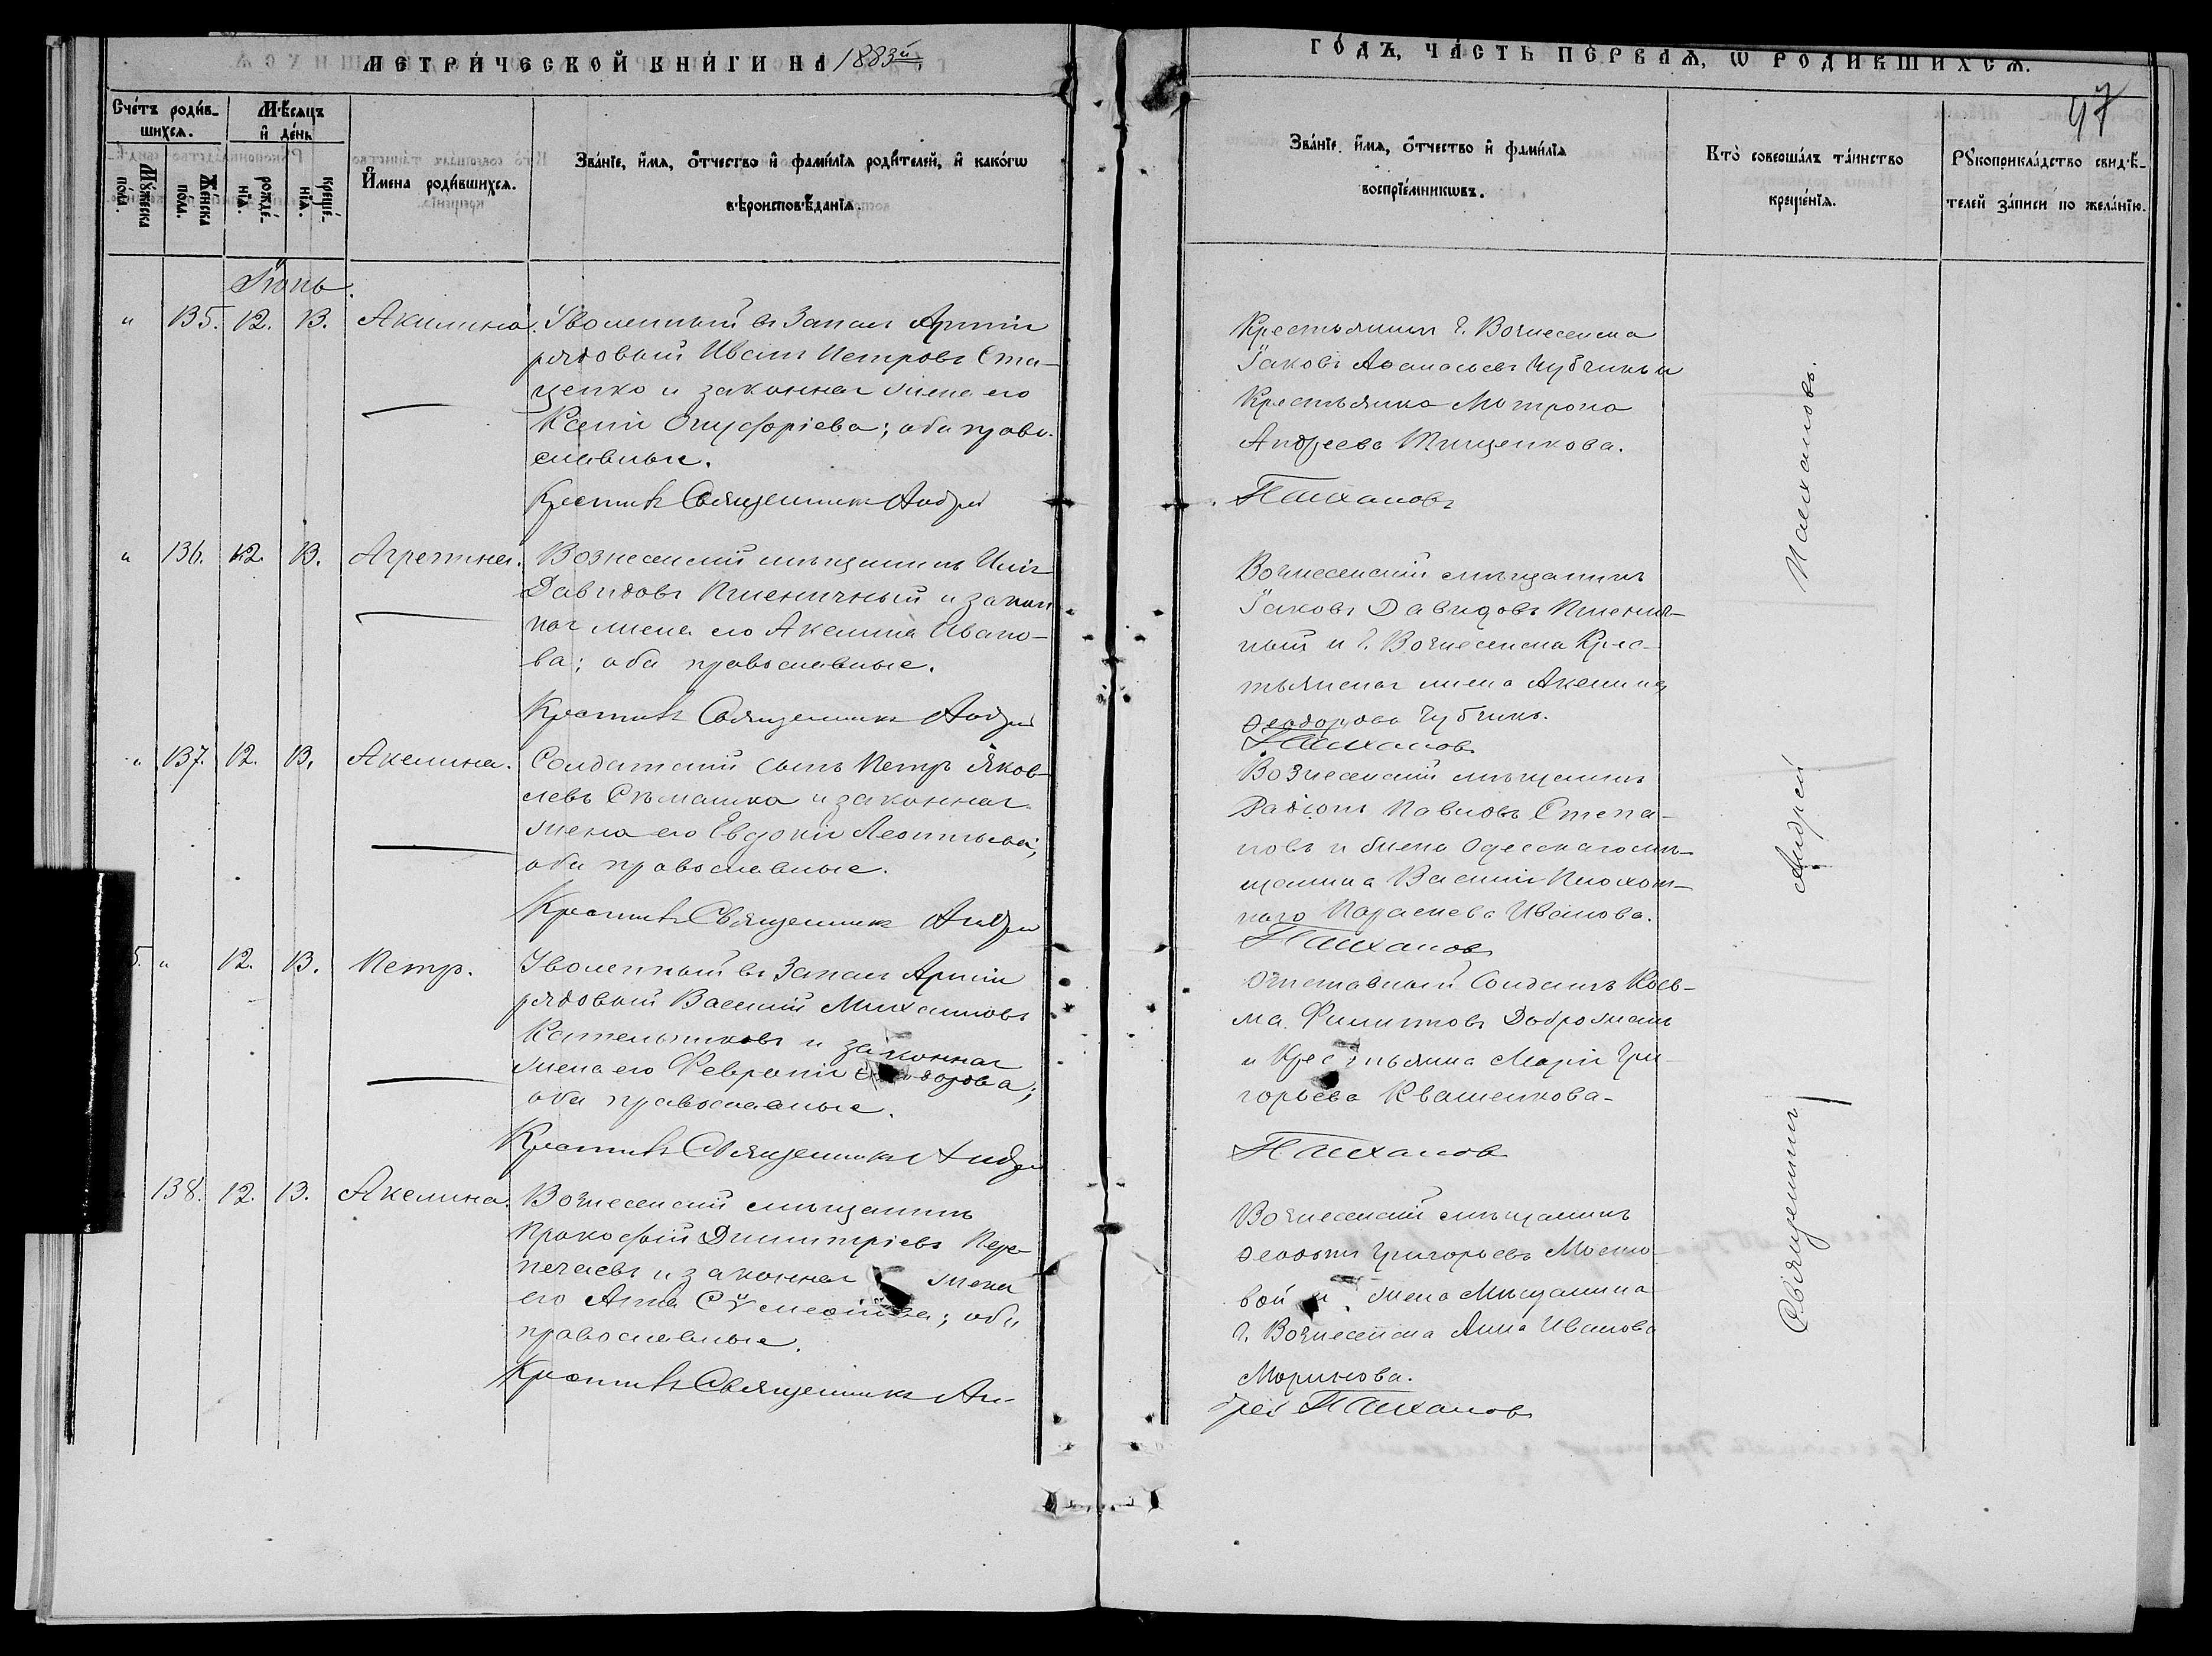 МЕТРИ́ЧЕСКОЙ КНИ́ГИ НА 1883й
ГО́ДЪ, ЧА́СТЬ ПЕ́РВАѦ, Ѡ РОДИ́ВШИХСѦ.
47
Сче́тъ роди́в-
шихсѧ.
Мꙋ́жеска
по́ла.
Же́нска
пола.
Мѣ́сѧцъ
и де́нь
рожде́-
нїѧ.
креще́-
нїѧ.
И҆мена роди́вшихсѧ.
Зва́нїе, и҆мѧ, ѻ҆́тчество и҆ фами́лїѧ роди́телей, и҆ како́гѡ
вѣроисповѣ́данїѧ.
Зва́нїе, и҆мѧ, ѻ҆́тчество и҆ фами́лїѧ
воспрїе́мникѡвъ.
Кто̀ соверша́лъ та́инство
креще́нїѧ.
Рꙋкоприкла́дство свидѣ́-
телей за́писи по жела́нїю.
Іюнь.
" 135. 12. 13. Акилина. Уволенный въ Запасъ Арміи
рядовый Иванъ Петровъ Ста-
ценко и законная жена его
Ксенія Онуфріева; оба право-
славные.
Крестилъ Священникъ Андрей
Крестьянинъ г. Вознесенска
Іаковъ Аѳанасьевъ Чубчикъ и
Крестьянка Матрона
Андреева Тищенкова.
" 136. 12. 13. Агрепина. Вознесенскій мѣщанинъ Илія
Давидовъ Пшеничный и закон
ная жена его Акелина Ивано-
ва; оба православные.
Крестилъ Священникъ Андрей
Вознесенскій мѣщанинъ
Іаковъ Давидовъ Пшенич-
ный и г. Вознесенска Крес-
тьянская жена Акелина
Ѳеодорова Чубчикъ.
" 137. 12. 13. Акелина. Солдатскій сынъ Петръ Яков-
левъ Сѣмашка и законная
жена его Евдокія Леонтьева;
оба православные.
Крестилъ Священникъ Андрей
Вознесенскій мѣщанинъ
Радіонъ Павловъ Степа-
новъ и жена Одесскаго мѣ-
щанина Василія
Параскева Иванова.
5. " 12. 13. Петръ. Уволенный въ Запасъ Арміи
рядовый Василій Михаиловъ
Кательниковъ и законная
жена его Февронія
оба православные.
Крестилъ Священникъ Андрей
Отставный Солдатъ Кось-
ма Филиповъ Доброжанъ
и Крестьянка Марія Гри-
горьева Квашенкова.
138. 12. 13. Акелина. Вознесенскій мѣщанинъ
Прокофій Димитріевъ Пере-
печаевъ и законная жена
его Анна; оба
православные.
Крестилъ Священникъ Ан-
Вознесенскій мѣщанинъ
Григорьевъ Мосто-
вой и жена Мѣщанина
г. Вознесенска Анна Иванова
Маринова.
дрей
Священникъ Андрей